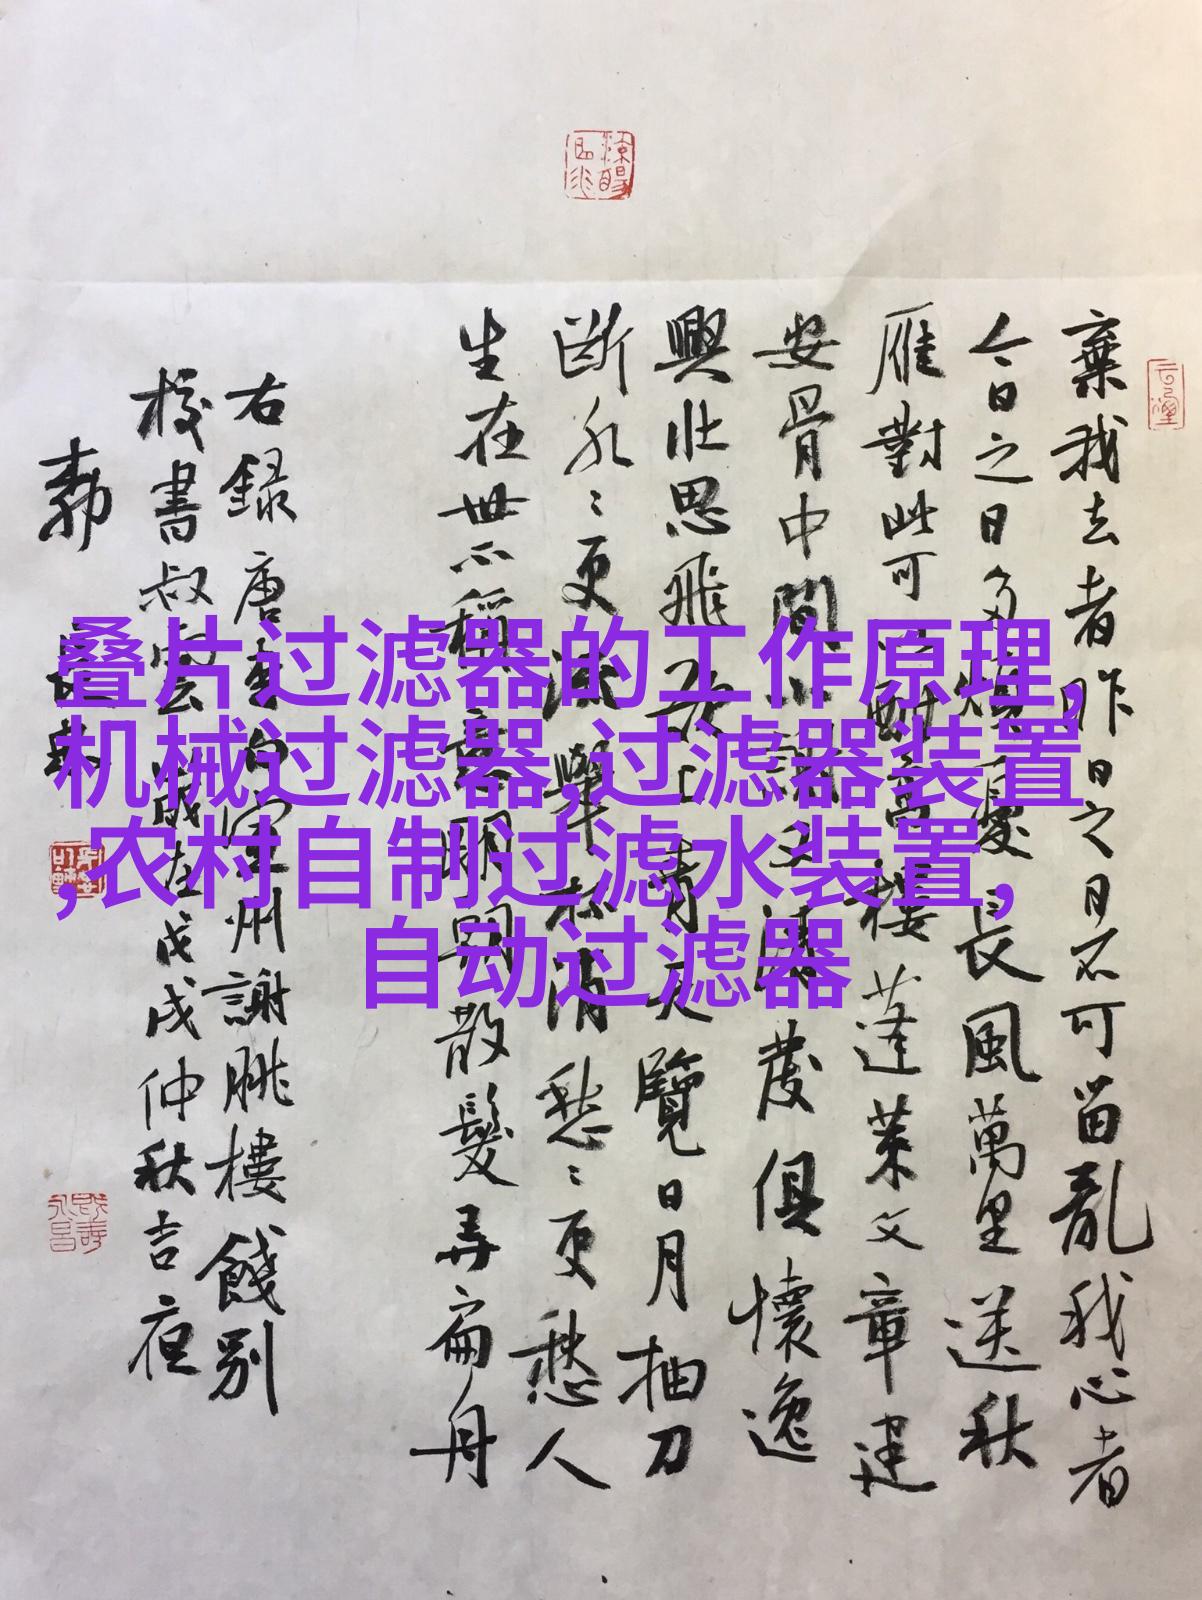 叠片过滤器的工作原理,
机械过滤器,过滤器装置
,农村自制过滤水装置,
自动过滤器
棄我去者昨日之日不可留亂我心者
今日之日多煩憂長風萬里送秋
雁對此可以酣高樓蓬萊文章建
安骨中間小謝又清發俱懷逸
興壯思飛欲上青天覽日月抽刀
断水〻更流舉杯消愁〻更愁人
生在世不稱意明朝散髮弄扁舟
右録唐李白宣州謝朓樓餞别
校書叔雲時在戊戌仲秋吉夜